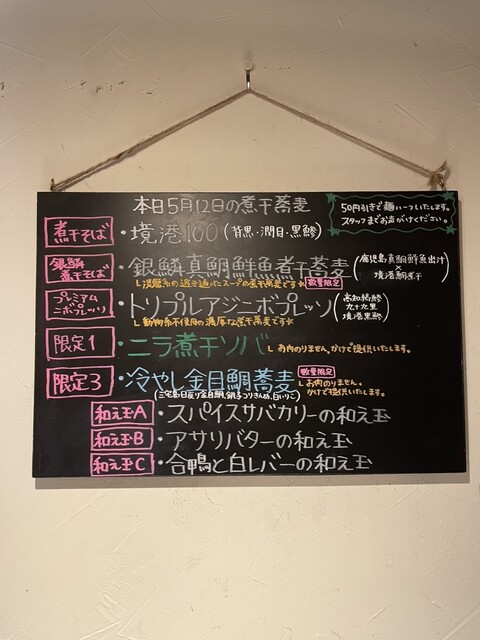 本日5月12日の煮干蕎麦
50円引きで麺ハーフいたします。
スタッフまでお声がけください。
煮干そば ・境港100 (背黒・潤目・黒鯵)
銀鱗煮干そば ・銀鱗真鯛鮮魚煮干蕎麦 (鹿児島真鯛鮮魚出汁×境港鯛煮干)
淡麗系の透き通ったスープの煮干蕎麦です☆ 数量限定
プレミアムニボプレッソ ・トリプルアジニボプレッソ (高知 九十九里 境港黒鯵)
動物系不使用の濃厚な煮干蕎麦です☆
限定1 ・ニラ煮干ソバ お肉のりません。かけで提供いたします。
限定3 ・冷やし金目鯛蕎麦 数量限定 お肉のりません。かけで提供いたします。
(三宅島日戻り金目鯛、銚子つりきんめ、白いりこ)
和え玉A ・スパイスサバカリーの和え玉
和え玉B ・アサリバターの和え玉
和え玉C ・合鴨と白レバーの和え玉